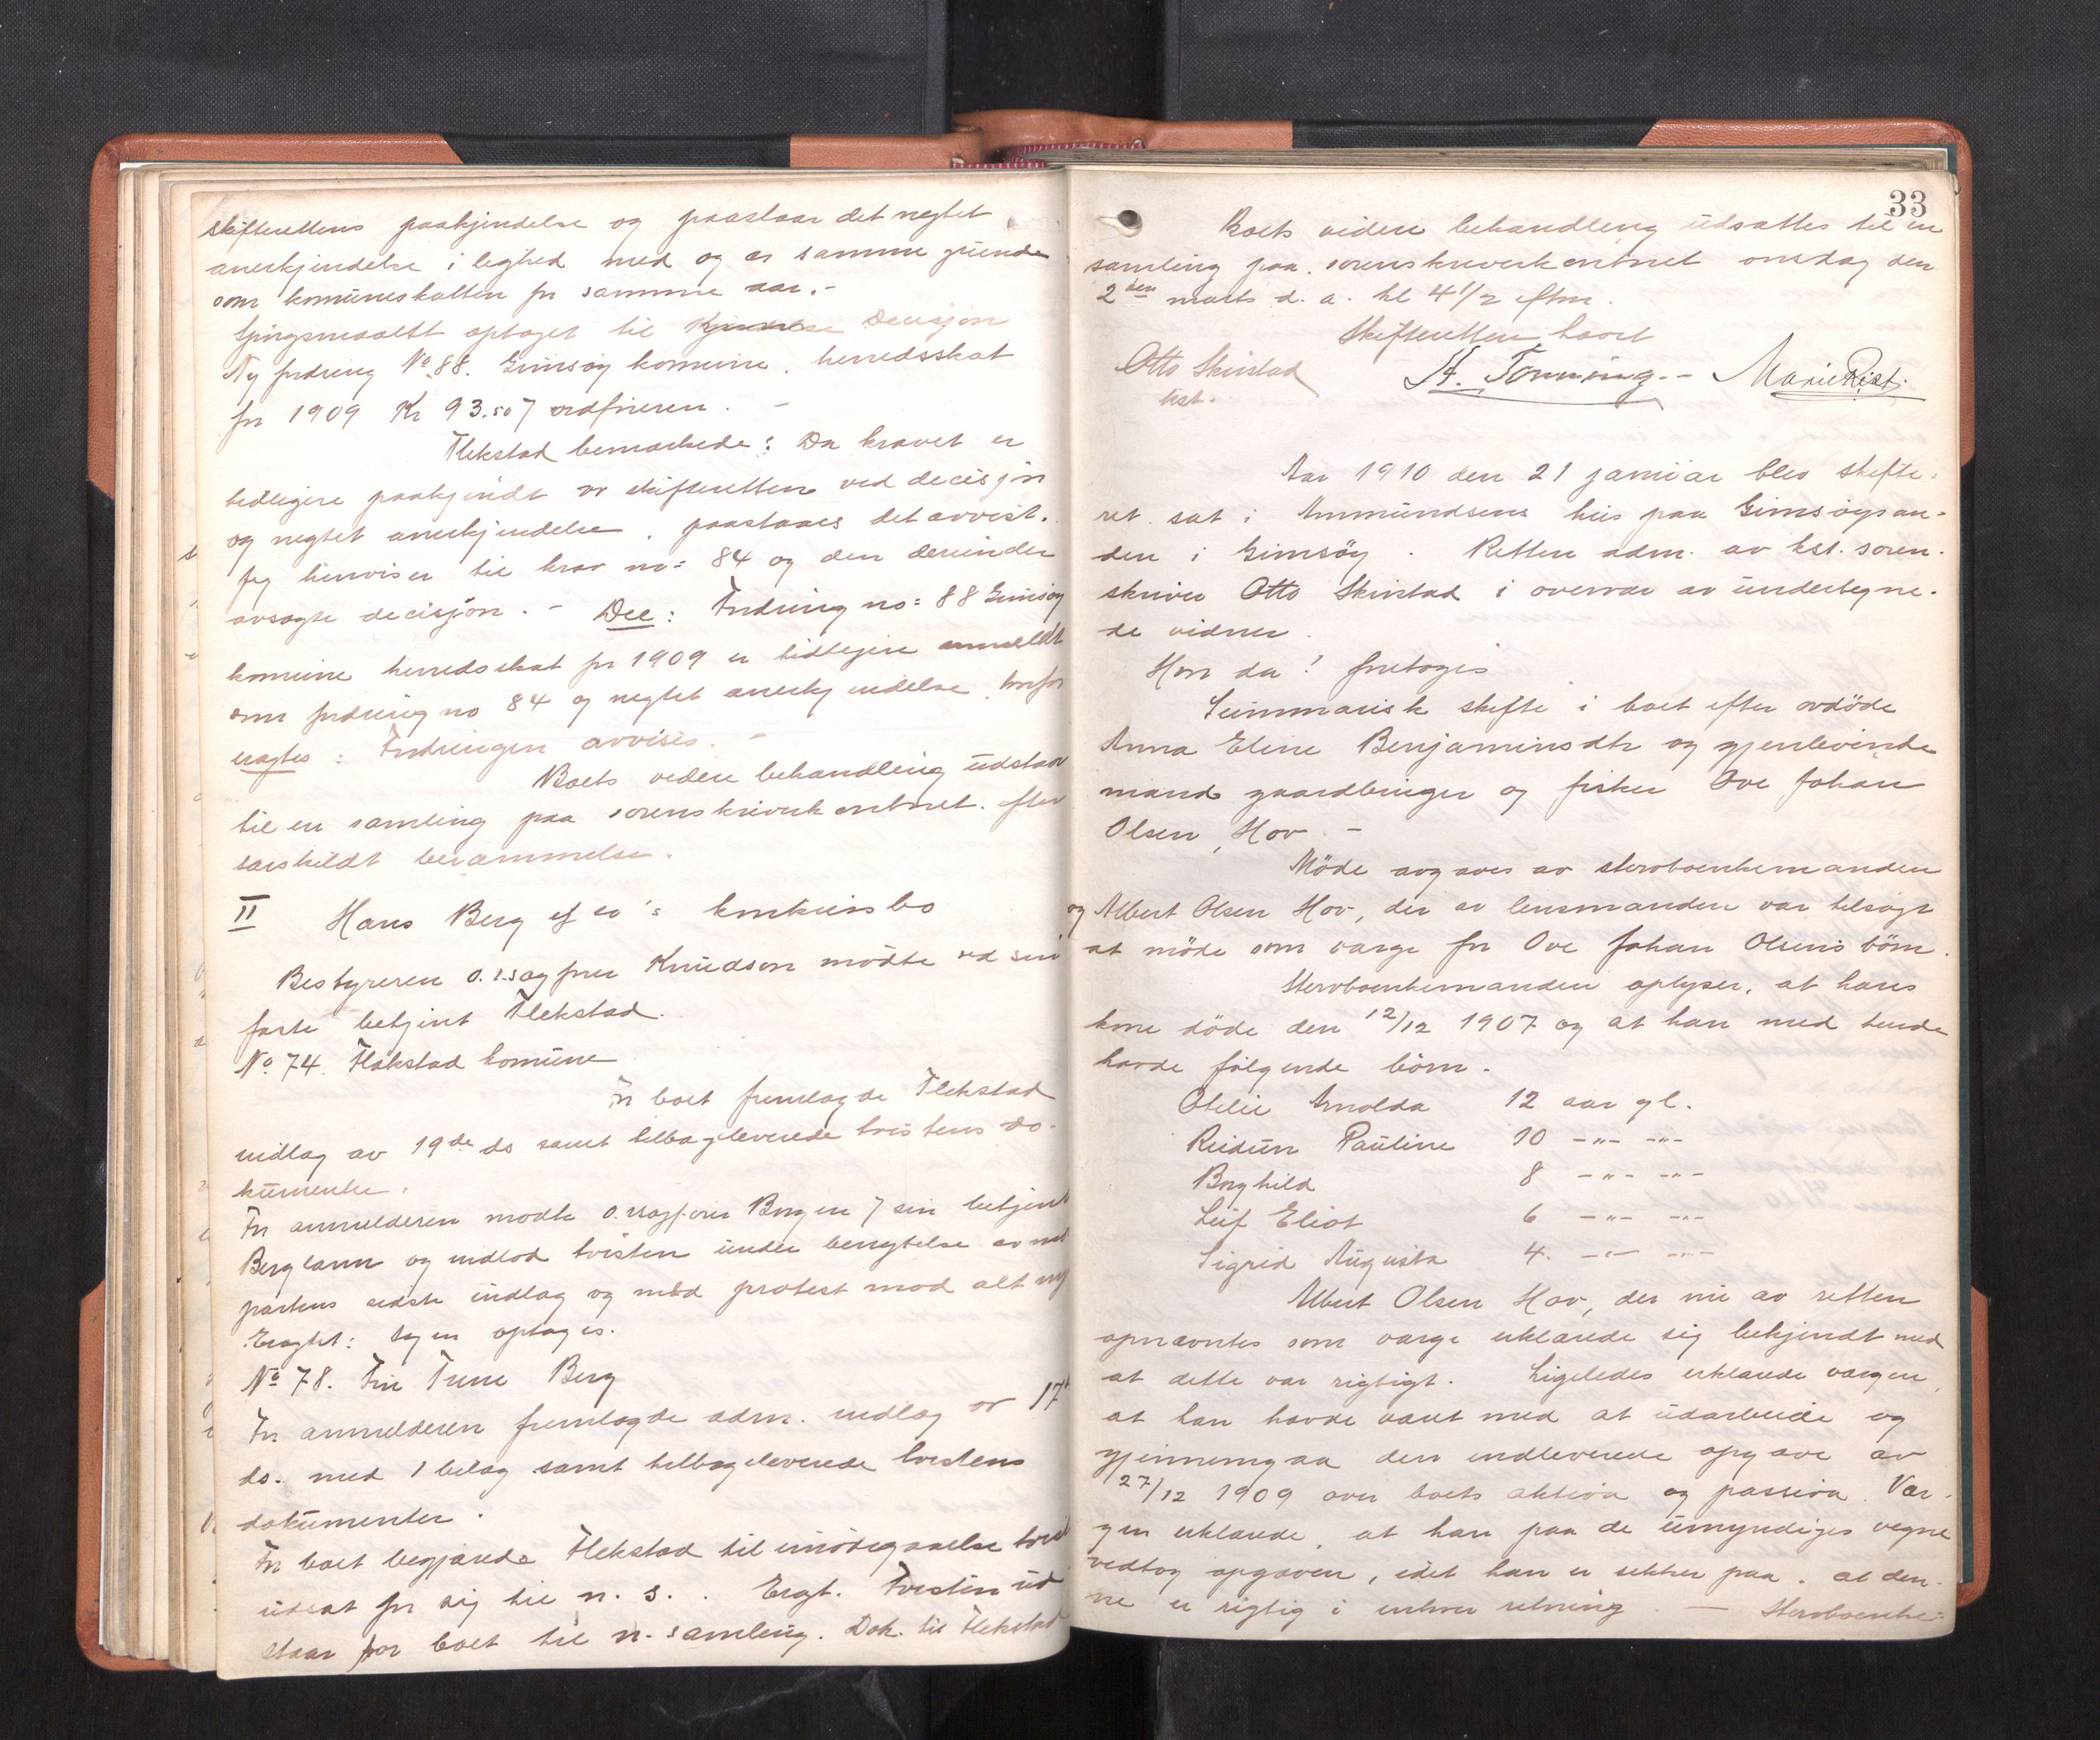 skifterettens paakjendelse og paastaar det negtet
anerkjendelse i lighed med og av samme grunde
som komuneskatten for samme aar. -
Spørgsmaalet optaget til Decisjon
Ny fordring No 88. Gimsøy komune, herredsskat
for 1909 Kr 93.50 / ordføreren. -
Flekstad bemærkede: Da kravet er
tidligere paakjendt av skifteretten ved decisjon
og negtet anerkjendelse, paastaaes det avvist.
Jeg henviser til krav no = 84 og den derunder
avsagte decisjon. - Dec: Fordring no = 88 Gimsøy
komune herredsskat for 1909 er tidligere anmeldt
som fordring no 84 og negtet anerkjendelse, hvorfor
eragtes: Fordringen avvises. -
Boets videre behandling udstaar
til en samling paa sorenskriverkontoret efter
særskildt berammelse.
II Hans Berg ef co's konkursbo
Bestyreren o.r.sagfører Knudson mødte ved sin
faste betjent Flekstad.
No. 74. Flakstad komune
For boet fremlagde Flekstad
indlæg av 19de ds samt tilbageleverede tvistens do-
kumenter.
For anmelderen mødte o.rsagfører Borgen / sin betjent
Berglann og indlod tvisten under benegtelse av mod
partens sidste indlæg og med protest mod alt nyt
Eragtet: Sagen optages.
No 78. Fru Trine Berg
For anmelderen fremlagde adm. indlæg av 17'
ds. med 1 belæg samt tilbageleverede tvistens
dokumenter.
For boet begjærede Flekstad til imødegaaelse tvist
udsat for sig til n. s. . Eragt. Tvisten ud
staar for boet til n. samling. Dok. til Flekstad
33
Boets videre behandling udsattes til en
samling paa sorenskriverkontoret onsdag den
2den marts d. a. kl 4 1/2 eftm.
Skifteretten hævet
Otto Skirstad
kst.
H. Tønning. - Marie Rist.
Aar 1910 den 21 januar blev skifte-
ret sat i Ammundsens hus paa Gimsøysan-
den i Gimsøy. Retten adm. av kst. soren-
skriver Otto Skirstad i overvær av undertegne-
de vidner.
Hvor da! foretoges
Summarisk skifte i boet efter avdøde
Anna Eline Benjaminsdtr og gjenlevende
mand gaardbruger og fisker Ove Johan
Olsen, Hov. -
Møde avgaves av stervboenkemanden
og Albert Olsen Hov, der av lensmanden var tilsagt
at møde som værge for Ove Johan Olsens børn.
Stervboenkemanden oplyser, at hans
kone døde den 12/12 1907 og at han med hende
havde følgende børn.
Otelie Arnolda 12 aar gl.
Reidun Pauline 10 -"- -"-
Borghild 8 -"- -"-
Leif Eliot 6 -"- -"-
Sigrid Augusta 4. -"- -"-
Albert Olsen Hov, der nu av retten
opnævntes som værge erklærede sig bekjendt med
at dette var rigtigt. Ligeledes erklærede værgen,
at han havde været med at udarbeide og
gjennemgaa den indleverede opgave av
27/12 1909 over boets aktiva og passiva. Vær-
gen erklærede, at han paa de umyndiges vegne
vedtog opgaven, idet han er sikker paa, at den-
ne er rigtig i enhver retning. - Stervboenke-